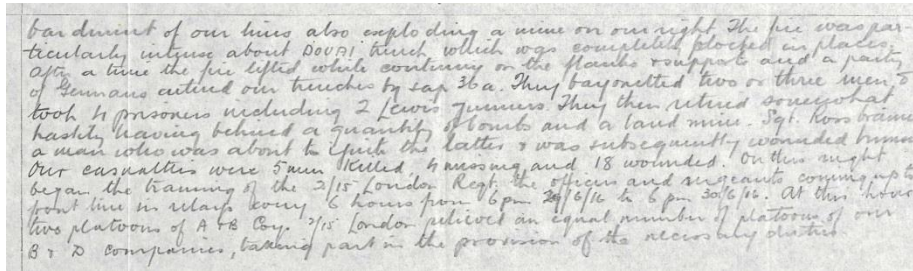 bardment of our lines also exploding a mine on our right. The fire was par-
ticularly intense about DOUAI trench which was completely blocked in places.
After a time the fire lifted while continuing on the flanks & supports and a party
of Germans entered our trenches by sap 36a. They bayonetted two or three men &
took 4 prisoners including 2 Lewis gunners. They then retired somewhat
hastily leaving behind a quantity of bombs and a land mine. Sgt. Ross brained
a man who was about to ignite the latter & was subsequently wounded himself
Our casualties were 5 men killed 4 missing and 18 wounded. On this night
began the training of the 2/15 London Regt. the officers and sergeants coming up to
front line in relays every 6 hours from 6 pm 29/6/16 to 6 pm 30/6/16. At this hour
two platoons of A & B Coy. 2/15 London relieved an equal number of platoons of our
B & D companies, taking part in the provision of the necessary duties.